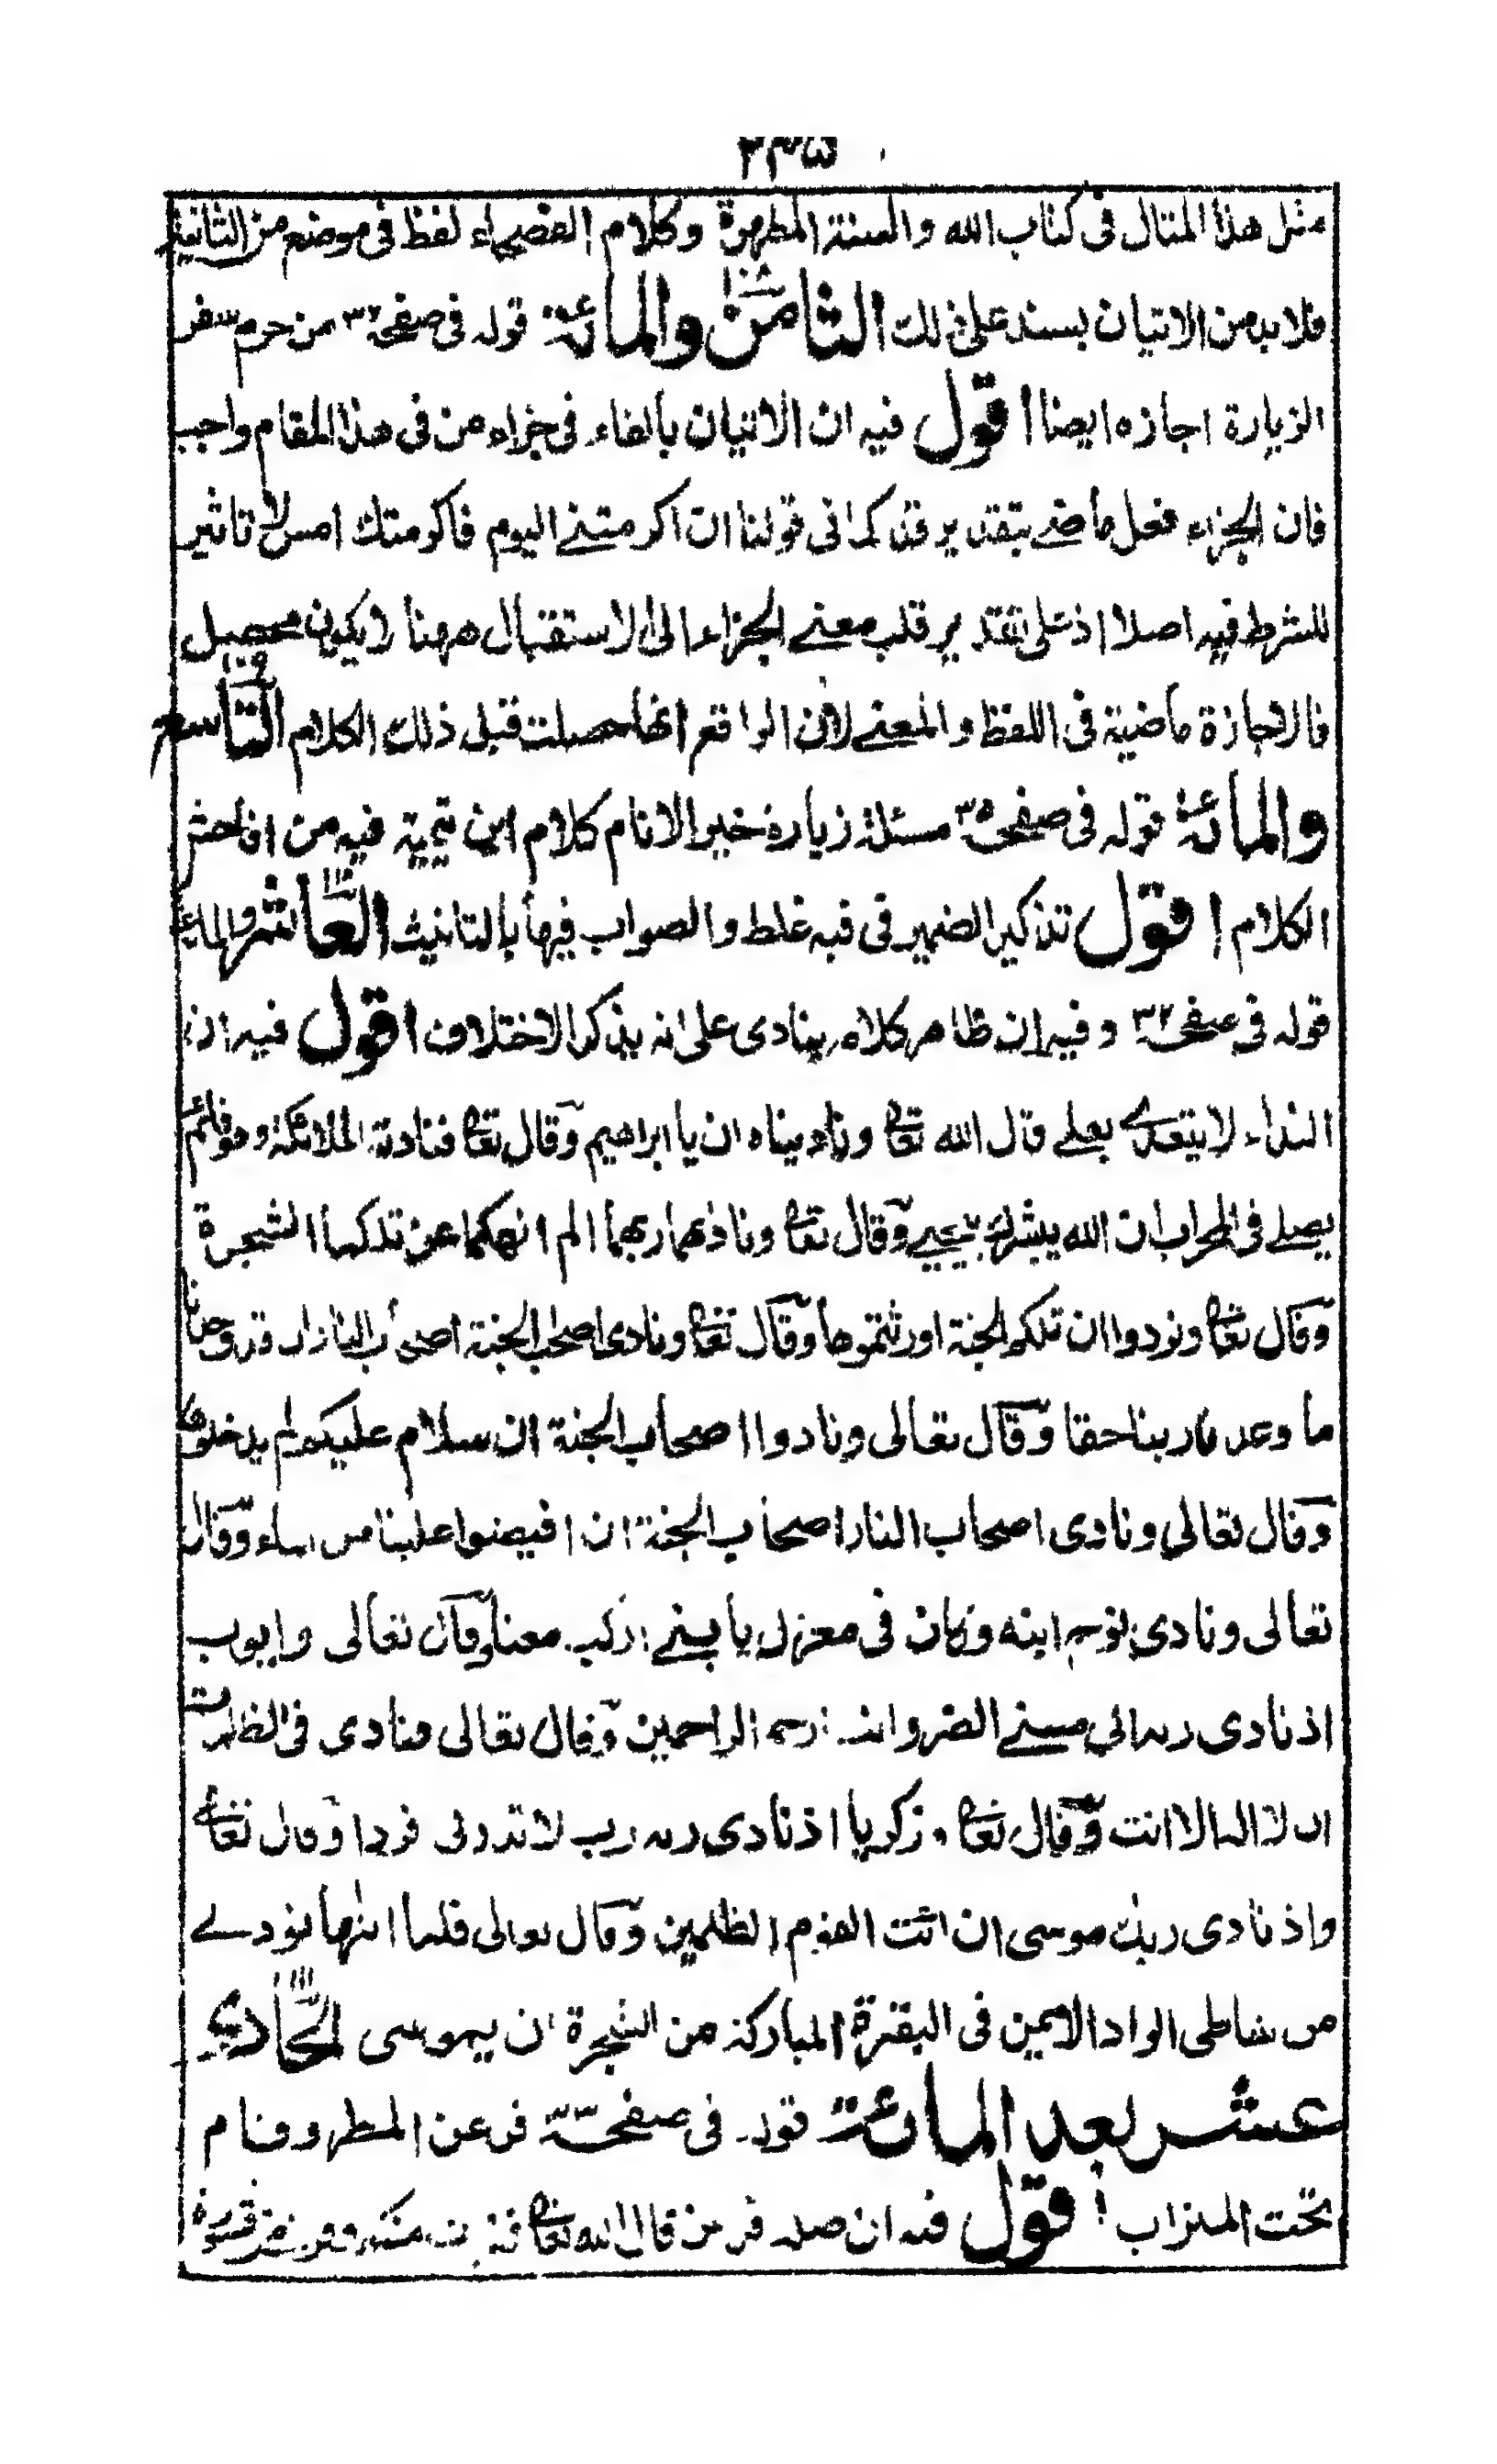 ٢٣٥
مثل هذا المثال فى كتاب الله والسنة المطهرة وكلام الفصحاء لفظ فى موضع من الثانية
فلابد من الاتيان بسند على ذلك الثامن والمائة قوله فى صفحة ٣٢ من حرم سفر
الزيارة اجازه ايضا اقول فيه ان الاتيان بالفاء فى جزاء من فى هذا المقام واجب
فان الجزاء فعل ماضے بتقدير قد كما فى قولنا ان اكرمتنے اليوم فاكرمتك امس لا تاثير
للشرط فيه اصلا اذ على تقدير قلب معنے الجزاء الى الاستقبال ههنا لا يكون محصيل
فالاجازة ماضية فى اللفظ والمعنے لان الواقع انها حصلت قبل ذلك الكلام التاسع
والمائة قوله فى صفحة ٣٥ مسئلة زيارة خير الانام كلام ابن تيمية فيه من افاحش
الكلام اقول تذكير الضمير فى فيه غلط والصواب فيها بالتانيث العاشر والمائة
قوله فى صفحة ٣٢ وفيه ان ظاهر كلامه ينادى على انه يذكر الاختلاف اقول فيه ان
النداء لا يتعدے بعلے قال الله تعا وناديناه ان يا ابراهيم وقال تعا فنادته الملائكة وهو قائم
يصلے فى المحراب ان الله يبشرك بيحيے وقال تعا وناداهما ربهما الم انهكما عن تلكما الشجرة
وقال تعا ونودوا ان تلكم الجنة اورثتموها وقال تعا ونادى اصحاب الجنة اصحاب النار ان قد وجدنا
ما وعدنا ربنا حقا وقال تعالى ونادوا اصحاب الجنة ان سلام عليكم لم يدخلوها
وقال تعالى ونادى اصحاب النار اصحاب الجنة ان افيضوا علينا من الماء وقال
تعالى ونادى نوح ابنه وكان فى معزل يا بنے اركب معنا وقال تعالى وايوب
اذ نادى ربه انى مسنے الضر وانت ارحم الراحمين وقال تعالى فنادى فى الظلمات
ان لا اله الا انت وقال تعا وزكريا اذ نادى ربه رب لا تذرنى فردا وقال تعا
واذ نادى ربك موسى ان ائت القوم الظلمين وقال تعالى فلما اتٰها نودے
من شاطى الواد الايمن فى البقعة المباركة من الشجرة ان يموسى الحادى
عشر بعد المائة قوله فى صفحة ٣٣ فر عن المطر وقام
تحت الميزاب اقول فيه ان صلة فر من قال الله تعا